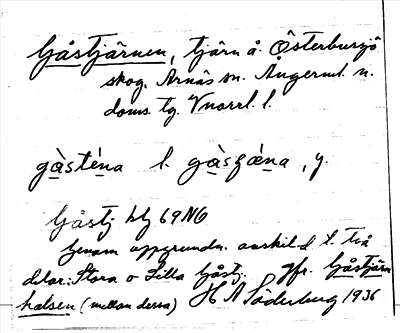 Gåstjärnen, tjärn å. Österbursjö
skog. Arnäs sn. Ångerml. n.
doms. tg. Vnorrl. l.
gàsténa l. gàsʒǽna, y.
Gåstj. bl 69NO
Genom uppgrundn. avskild t. två
delar: Stora o Lilla Gåstj. Jfr. Gåstjärn
halsen (mellan dessa) H A Söderburg 1936